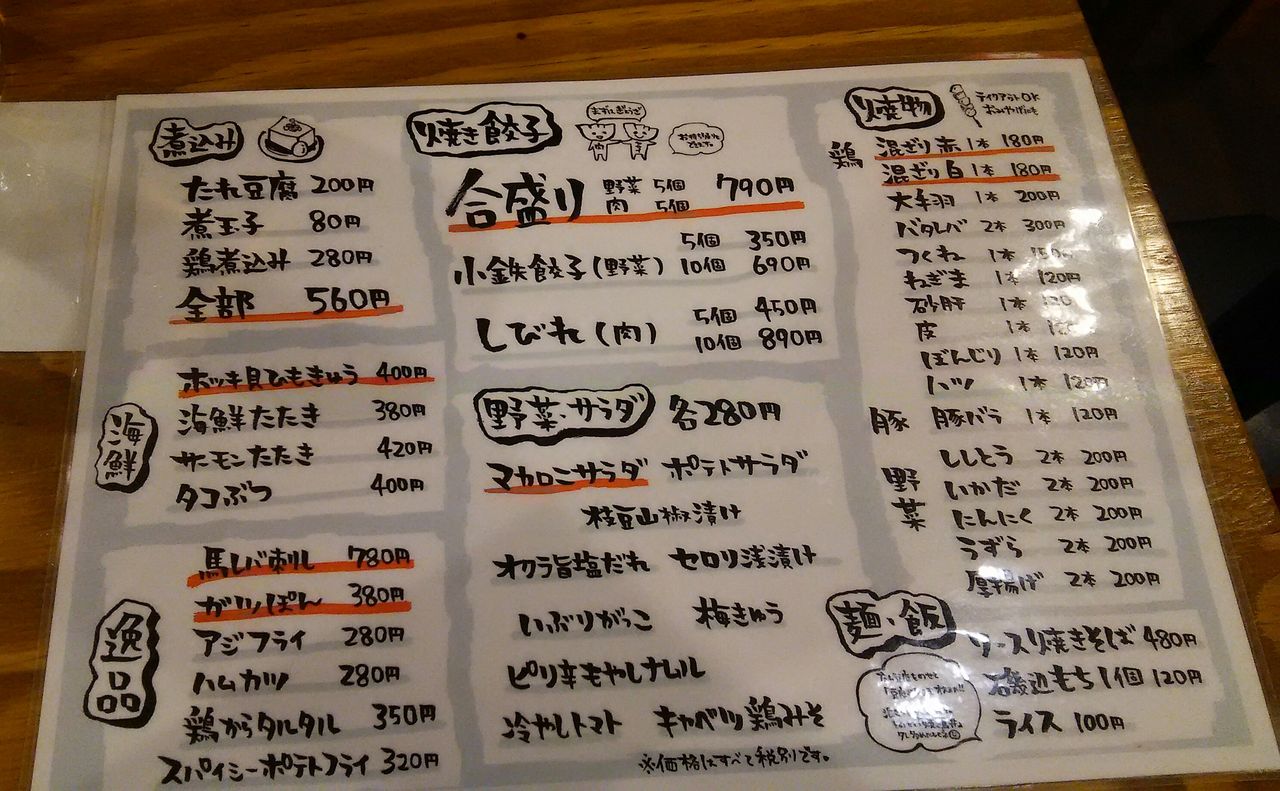 煮込み
たれ豆腐 200円
煮玉子 80円
鶏煮込み 280円
全部 560円
海鮮
ホッキ貝ひもきゅう 400円
海鮮たたき 380円
サーモンたたき 420円
タコぶつ 400円
逸品
馬レバ刺し 780円
ガツぽん 380円
アジフライ 280円
ハムカツ 280円
鶏からタルタル 350円
スパイシーポテトフライ 320円
焼き餃子
合盛り 野菜 5個 肉 5個 790円
5個 350円
小鉄餃子(野菜) 10個 690円
5個 450円
しびれ(肉) 10個 890円
野菜・サラダ 各280円
マカロニサラダ ポテトサラダ
枝豆山椒漬け
オクラ旨塩だれ セロリ浅漬け
いぶりがっこ 梅きゅう
ピリ辛もやしナムル
冷やしトマト キャベツ鶏みそ
※価格はすべて税別です。
焼物
テイクアウトOK
おみやげにも
鶏 混ざり赤 1本 180円
混ざり白 1本 180円
大手羽 1本 200円
バタレバ 2本 300円
つくね 1本
ねぎま 1本 120円
砂肝 1本
皮 1本
ぼんじり 1本 120円
ハツ 1本 120円
豚 豚バラ 1本 120円
野菜 ししとう 2本 200円
いかだ 2本 200円
にんにく 2本 200円
うずら 2本 200円
厚揚げ 2本 200円
麺・飯
ソース焼きそば 480円
磯辺もち 1個 120円
ライス 100円